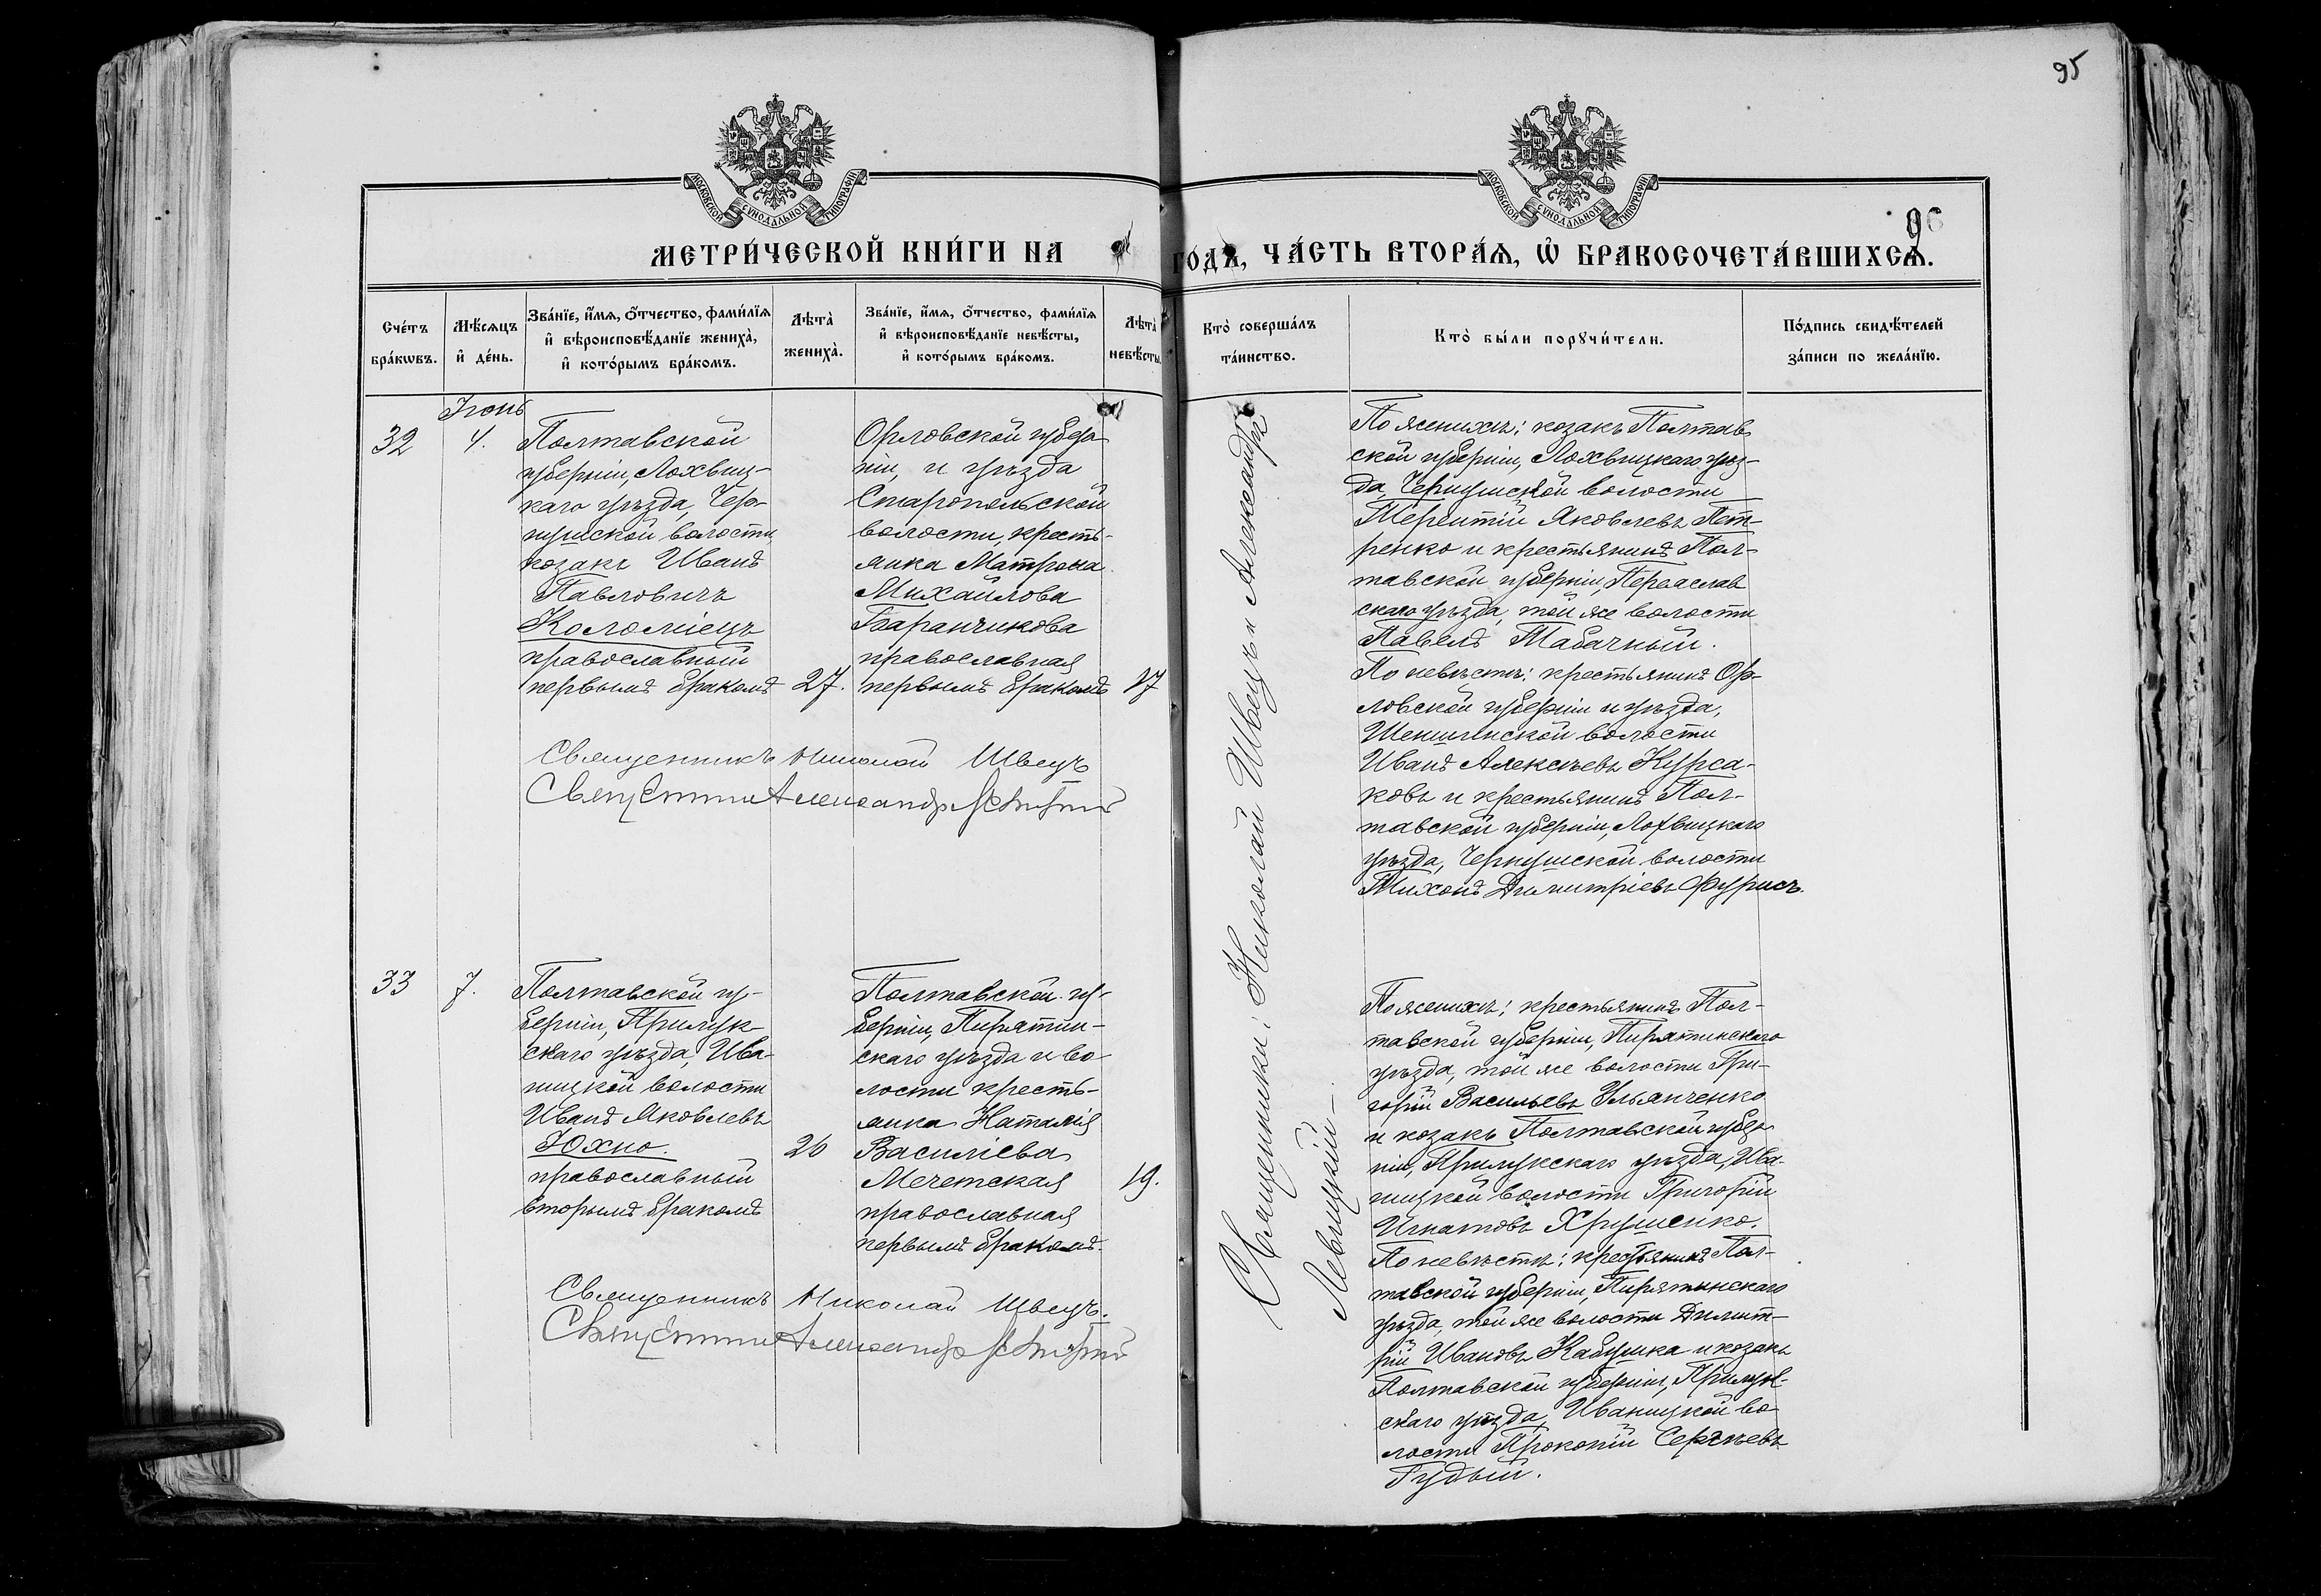 95
МОСКОВСКОЙ СѴНОДАЛЬНОЙ ТИПОГРАФІИ
МОСКОВСКОЙ СѴНОДАЛЬНОЙ ТИПОГРАФІИ
96
МЕТРИ́ЧЕСКОЙ КНИ́ГИ НА
ГОДЪ, ЧА́СТЬ ВТОРА́Ѧ, Ѡ҆ БРАКОСОЧЕТА́ВШИХСѦ.
Сче́тъ бра́кѡвъ.
Мѣ́сѧцъ и҆ де́нь.
Зва́нїе, и҆́мѧ, ѻ҆́тчество, фами́лїѧ
и҆ вѣроисповѣ́данїе жениха̀,
и҆ кото́рымъ бра́комъ.
Лѣта̀ жениха̀.
Зва́нїе, и҆́мѧ, ѻ҆́тчество, фами́лїѧ
и҆ вѣроисповѣ́данїе невѣ́сты,
и҆ кото́рымъ бра́комъ.
Лѣта̀ невѣ́сты.
Кто̀ соверша́лъ та́инство.
Кто̀ бы́ли порꙋчи́тели.
По́дпись свидѣ́телей
за́писи по жела́нїю.
32
Іюнь
4.
Полтавской
губерніи, Лохвиц-
каго уѣзда, Чер-
нушской волости
козакъ Иванъ
Павловичъ
Коломіецъ
православный
первымъ бракомъ
27.
Орловской губер
ніи, и уѣзда
Старопольской
волости, кресть-
янка Матрона
Михайлова
Баранчикова
православная
первымъ бракомъ
17
Священникъ Николай Швецъ
Священникъ Александръ Левицкій
Священники: Николай Швецъ и Александръ
Левицкій
По женихѣ: козакъ Полтав
ской губерніи, Лохвицкаго уѣз-
да, Чернушской волости
Терентій Яковлевъ Пет-
ренко и крестьянинъ Пол-
тавской губерніи, Переяслав
скаго уѣзда, той же волости
Павелъ Табачный.
По невѣстѣ: крестьянинъ Ор-
ловской губерніи и уѣзда,
Шеншинской волости
Иванъ Алексѣевъ Курса-
ковъ и крестьянинъ Пол-
тавской губерніи, Лохвицкаго
уѣзда, Чернушской волости
Тихонъ Димитріевъ Фурисъ.
33
7.
Полтавской гу-
берніи, Прилук-
скаго уѣзда, Ива-
ницкой волости
Иванъ Яковлевъ
Юхно.
православный
вторымъ бракомъ
26
Полтавской гу-
берніи, Пирятин-
скаго уѣзда и во
лости кресть-
янка Наталія
Василіева
Мечетская
православная
первымъ бракомъ.
19.
Священникъ Николай Швецъ.
Священникъ Александръ Левицкій
По женихѣ: крестьянинъ Пол-
тавской губерніи, Пирятинскаго
уѣзда, той же волости Гри-
горій Васильевъ Ульянченко
и козакъ Полтавской губер
ніи, Прилукскаго уѣзда, Ива-
ницкой волости Григорій
Игнатовъ Хрушенко.
По невѣстѣ: крестьянинъ Пол-
тавской губерніи, Пирятинскаго
уѣзда, той же волости Димит-
рій Ивановъ Кабушка и козакъ
Полтавской губерніи, Прилук-
скаго уѣзда, Иваницкой во
лости Прокопій Сергѣевъ
Гудый.